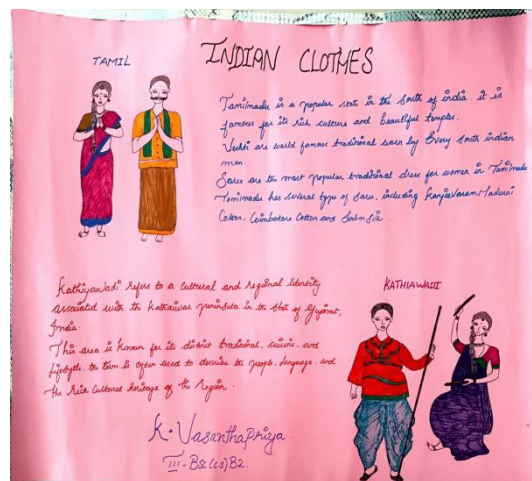 INDIAN CLOTHES
TAMIL
Tamilnadu is a popular state in the South of india. it is
famous for its rich culture and beautiful temples.
are world famous traditional worn by Every south indian
men.
Saree are the most popular traditional dress for women in Tamilnadu
Tamilnadu has several type of Saree, including Kanjeevaram, Madurai
Cotton, Coimbatore Cotton and
Kathiyawadi refers to a cultural and regional identity
associated with the Kathiawar peninsula in the State of Gujarat,
India.
This area is known for its distinct traditional, cuisine, and
lifestyle. the term is often used to describe the people, language, and
the rich cultural heritage of the region.
KATHIAWADI
K. Vasanthapriya
III - BSc (cs) B2.